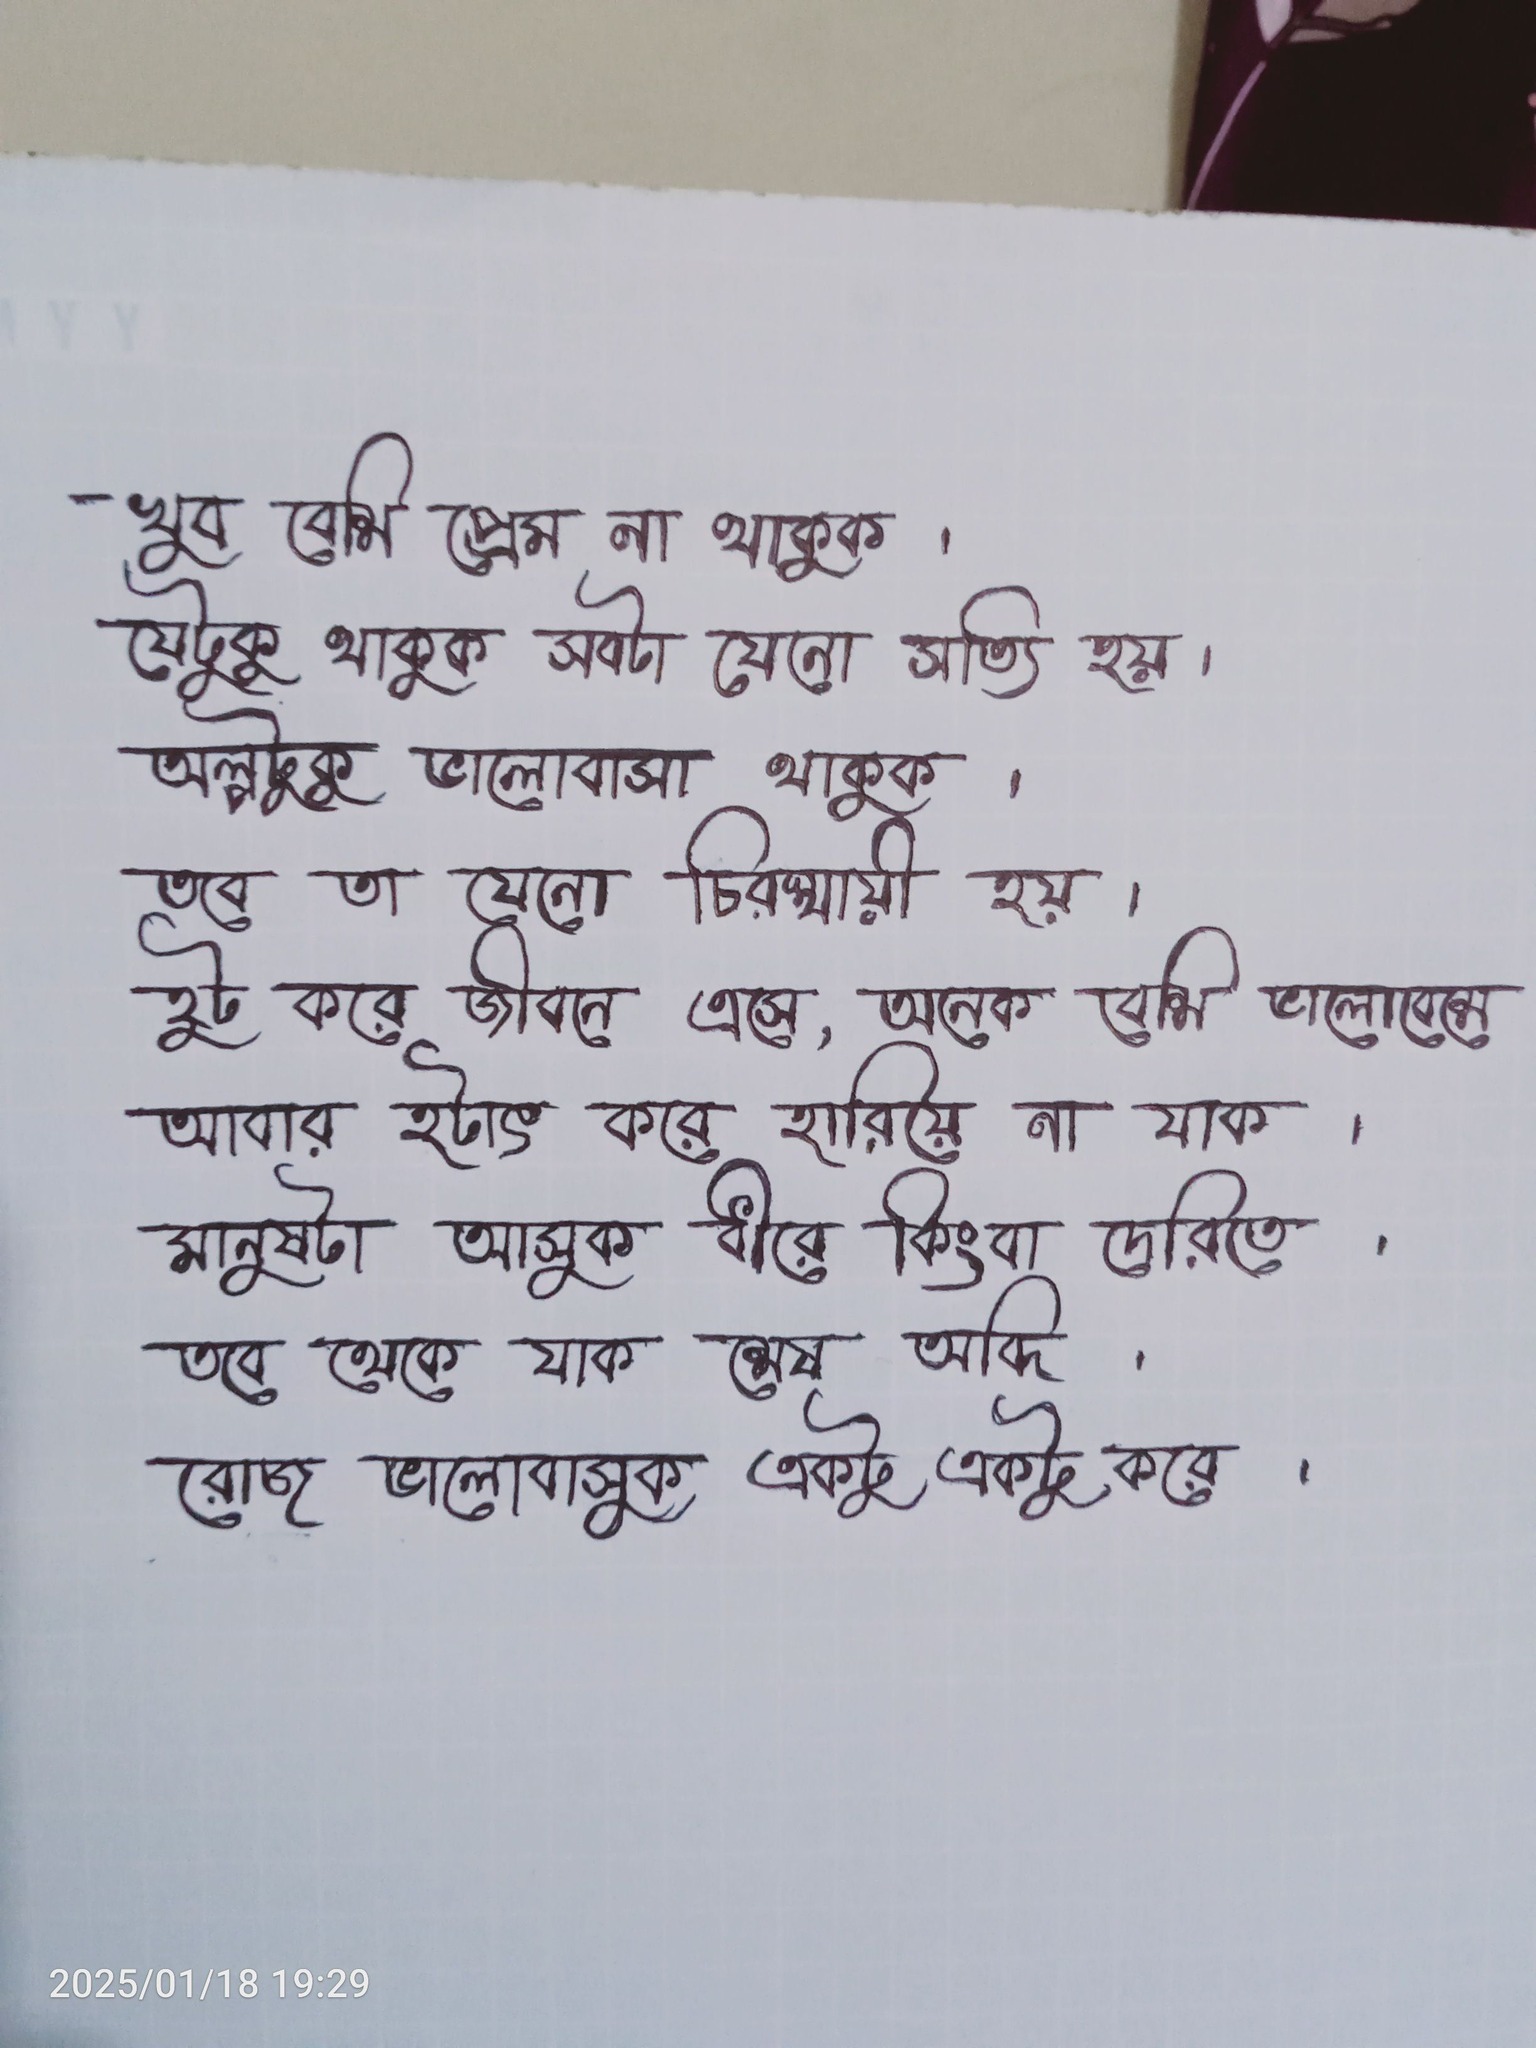 - খুব বেশি প্রেম না থাকুক ।
যেটুকু থাকুক সবটা যেনো সত্যি হয় ।
অল্পটুকু ভালোবাসা থাকুক ।
তবে তা যেনো চিরস্থায়ী হয় ।
হুট করে জীবনে এসে, অনেক বেশি ভালোবেসে
আবার হটাৎ করে হারিয়ে না যাক ।
মানুষটা আসুক ধীরে কিংবা দেরিতে ।
তবে থেকে যাক শেষ অব্দি ।
রোজ ভালোবাসুক একটু একটু করে ।
2025/01/18 19:29